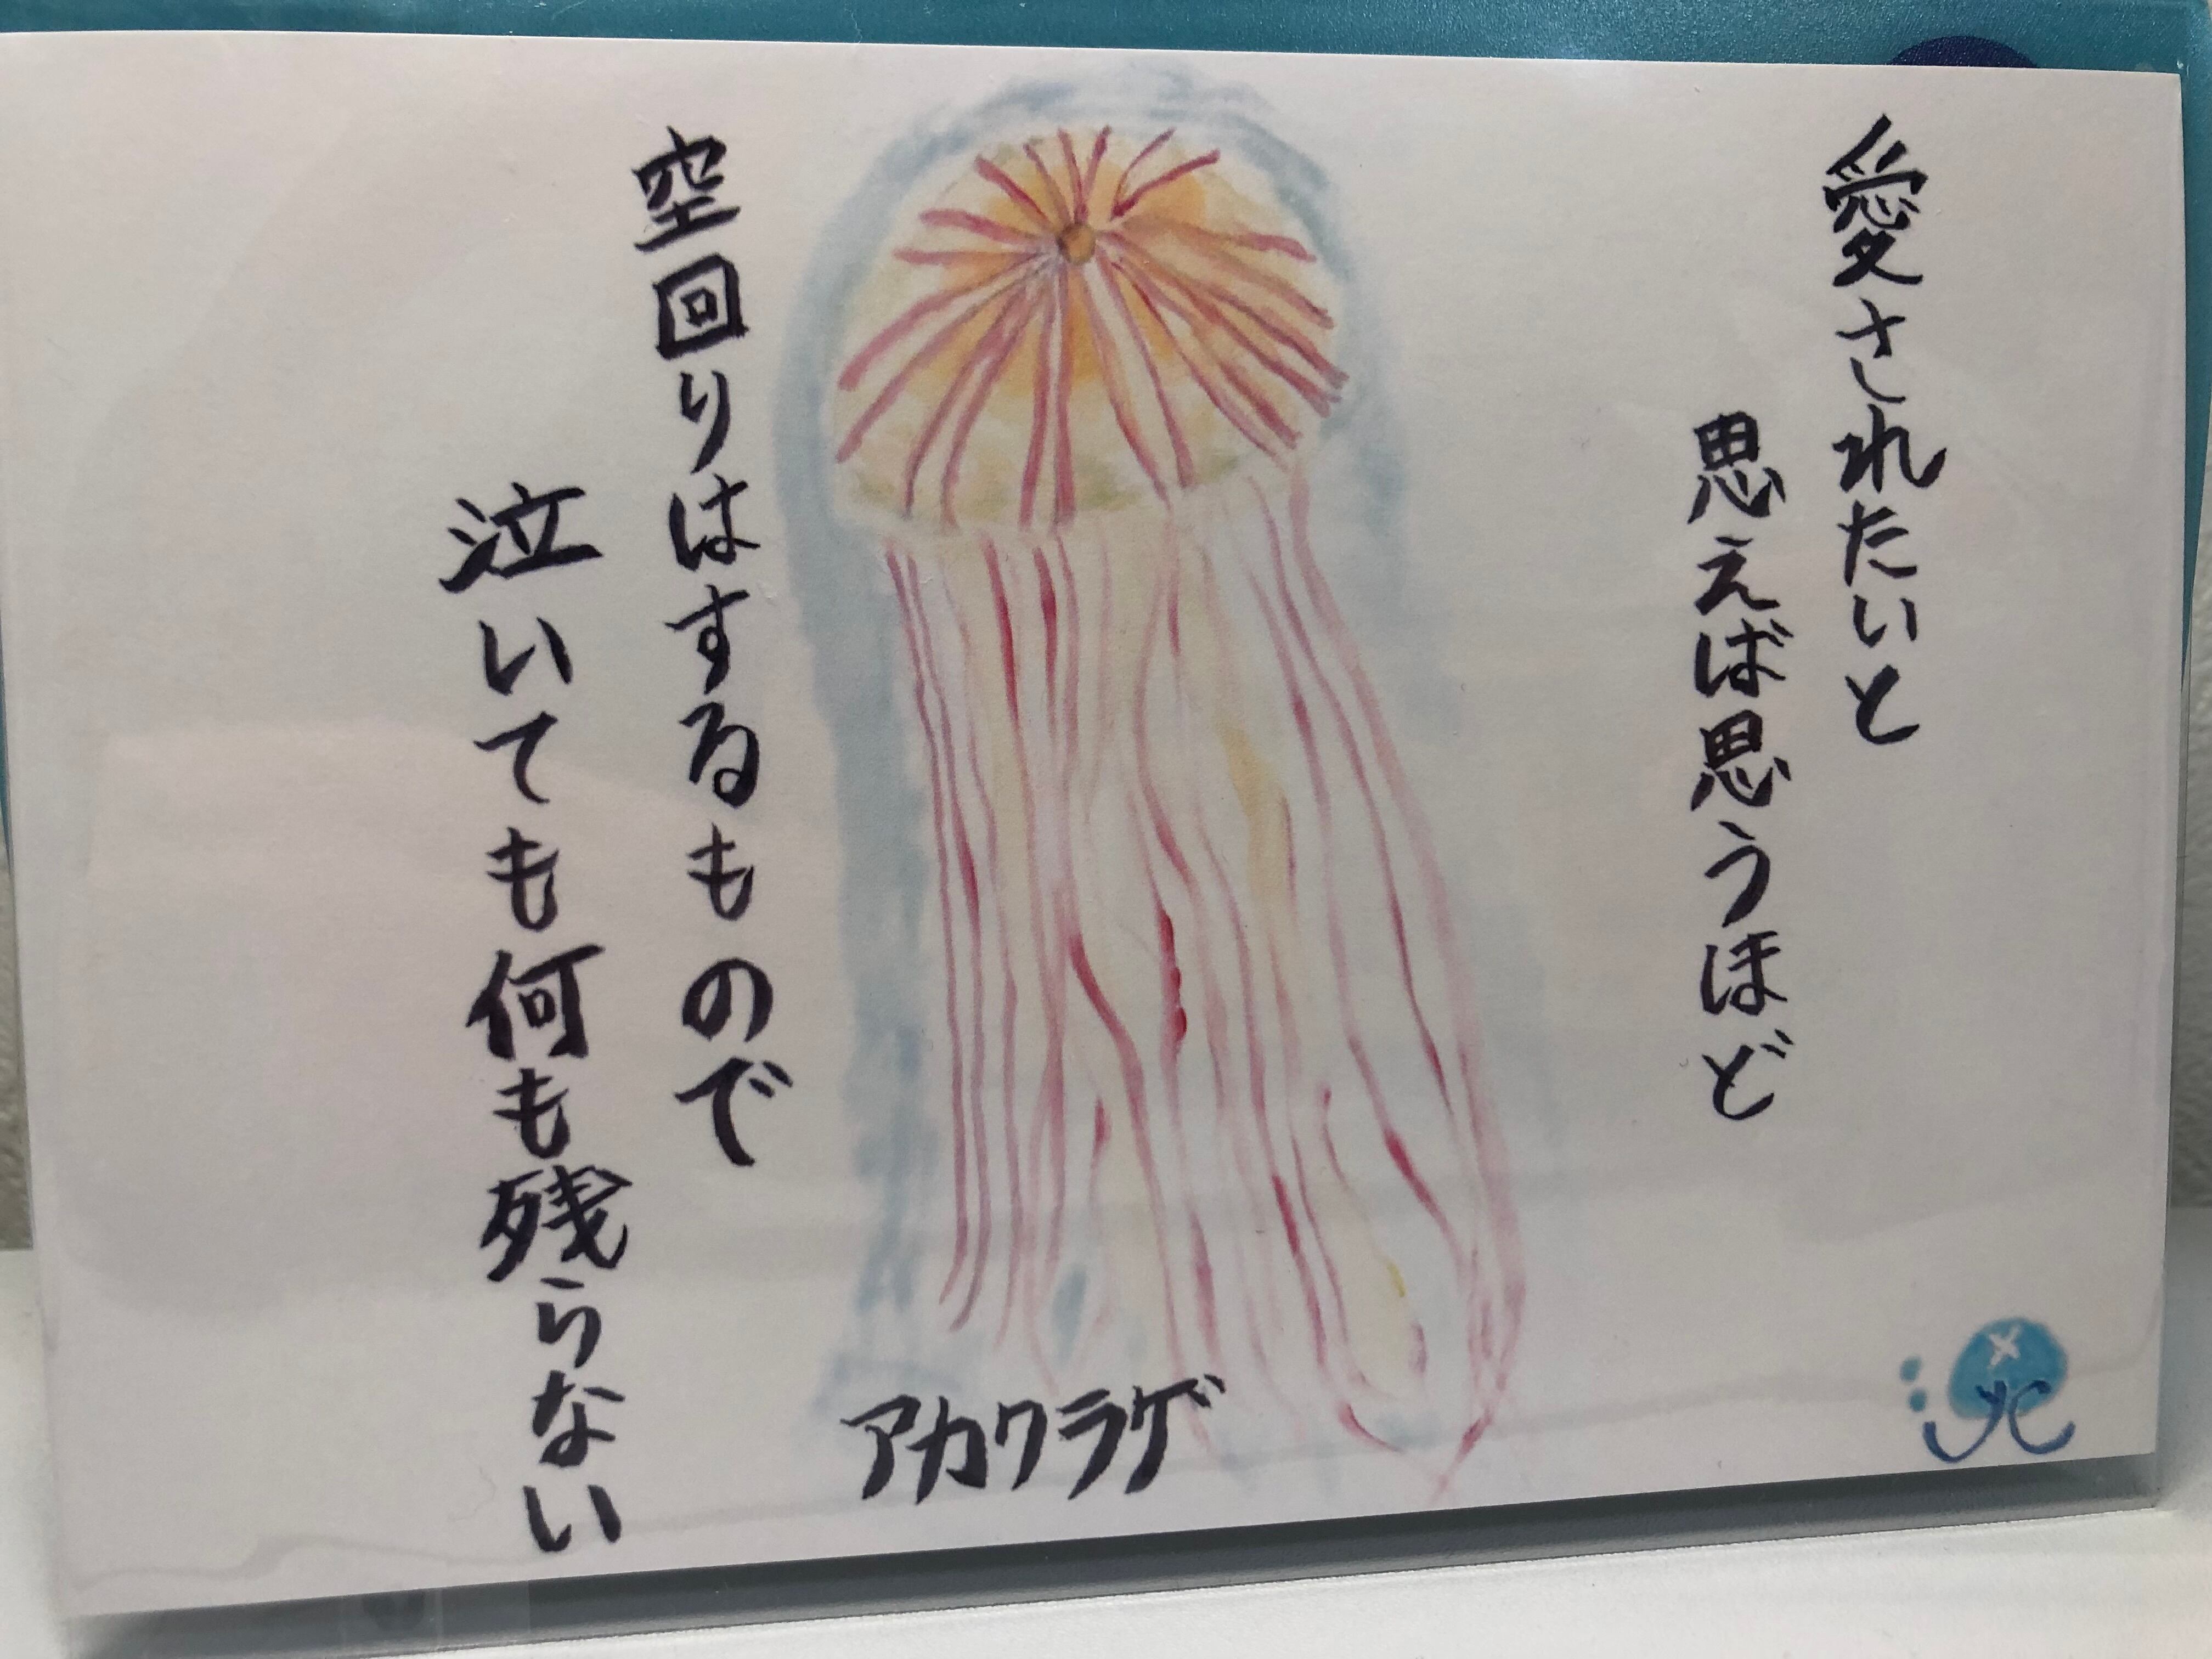 愛されたいと
思えば思うほど
空回りはするもので
泣いても何も残らない
アカクラゲ